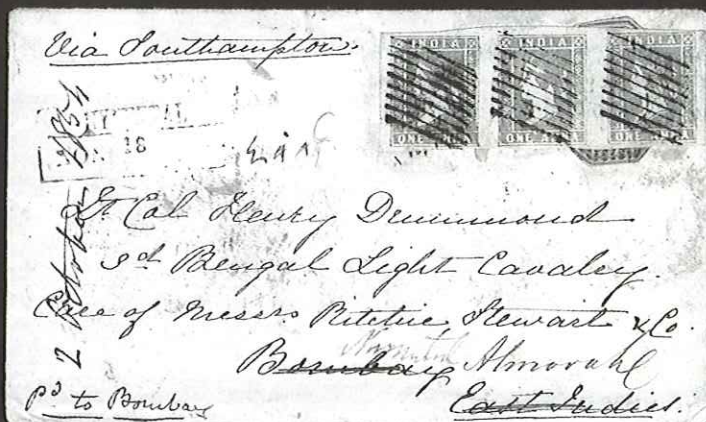 Via Southampton.
INDIA INDIA INDIA
ONE ANNA ONE ANNA ONE ANNA
18
Lt Col Henry Drummond
3d Bengal Light Cavalry.
Care of Messrs Ritchie, Stewart & Co.
Bombay Almorah
East Indies.
Pd to Bombay
2 October 1854